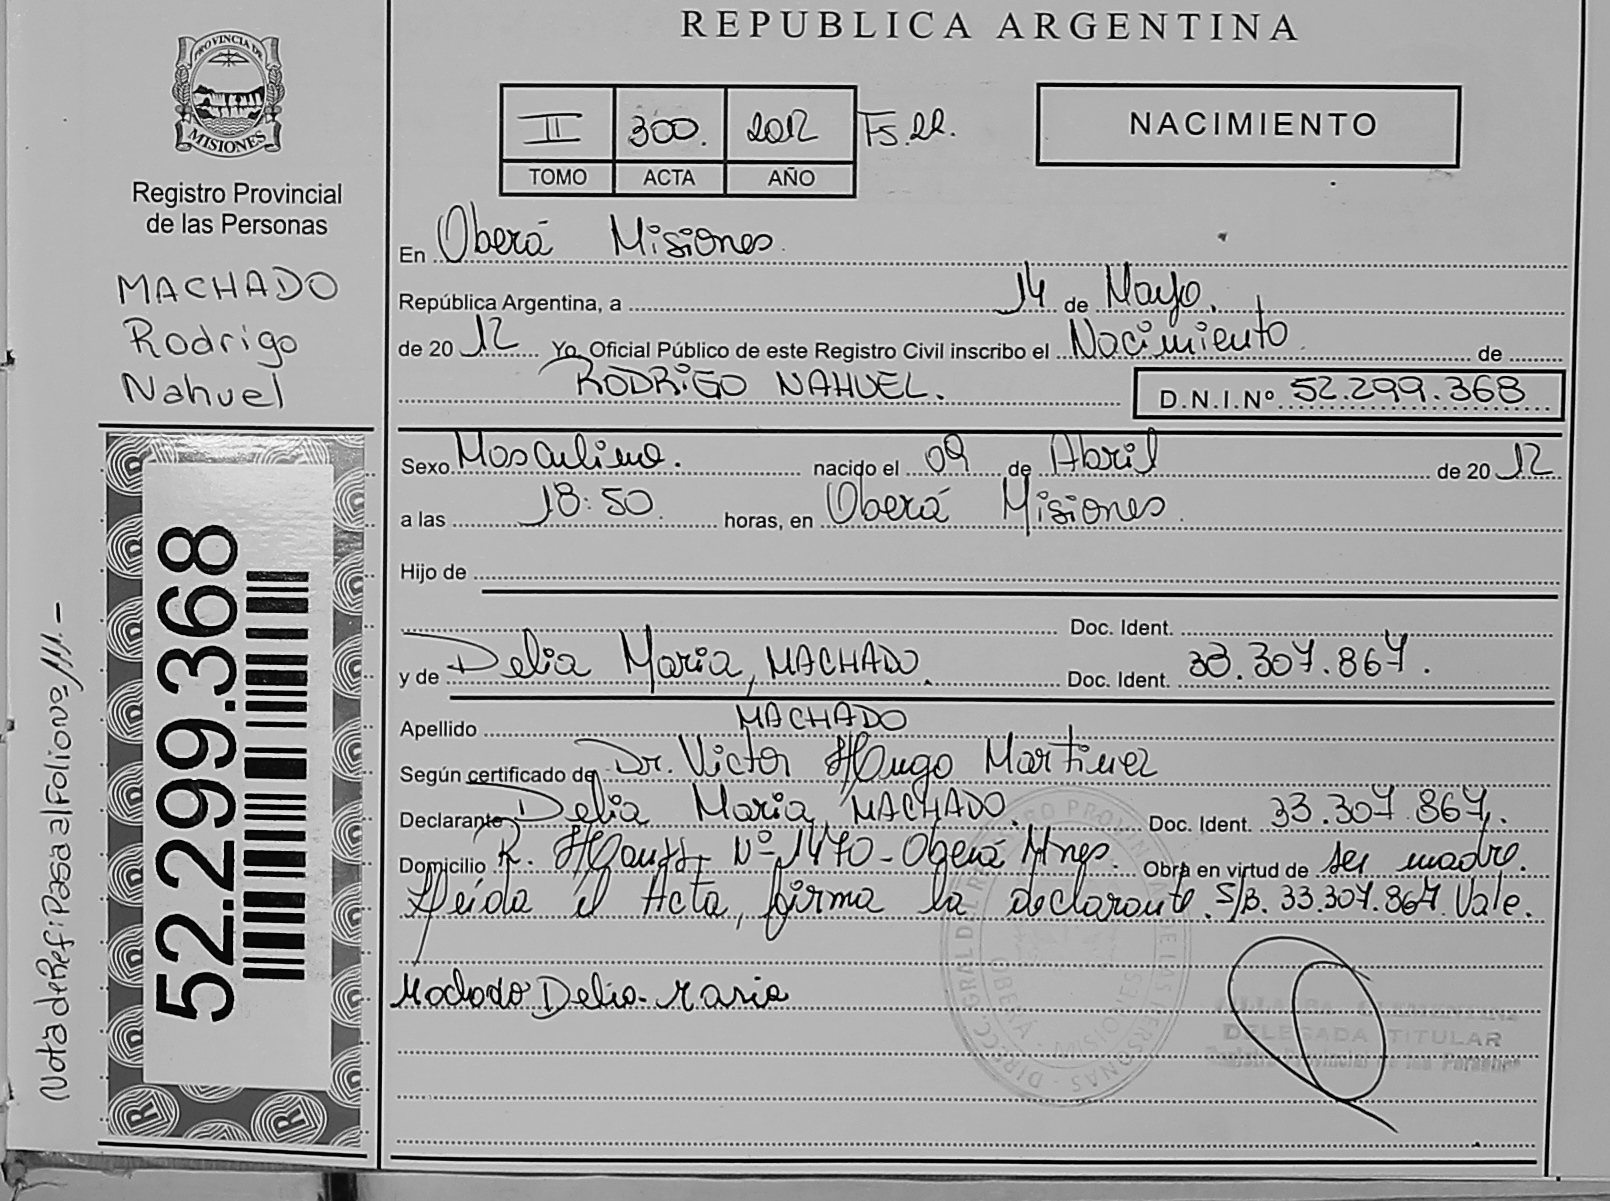 REPUBLICA ARGENTINA
PROVINCIA DE
MISIONES
Registro Provincial
de las Personas
MACHADO
Rodrigo
Nahuel
52.299.368
Nota de Ref: Pasa al Folio Nº 111.-
II 300. 2012 Fs. 22.
TOMO ACTA AÑO
NACIMIENTO
En Oberá Misiones.
República Argentina, a 14 de Mayo.
de 20 12 Yo, Oficial Público de este Registro Civil inscribo el Nacimiento. de
RODRIGO NAHUEL. D.N.I.Nº 52.299.368
Sexo Masculino. nacido el 09 de Abril de 20 12
a las 18:50. horas, en Oberá Misiones.
Hijo de
Doc. Ident.
y de Delia Maria, MACHADO. Doc. Ident. 33.307.867.
Apellido MACHADO
Según certificado de Dr. Victor Hugo Martinez
Declarante Delia Maria, MACHADO. Doc. Ident. 33.307.867.
Domicilio R. Nº 1470 - Oberá Mnes. Obra en virtud de ser madre.
Leída el Acta, firma la declarante. S/B. 33.307.867. Vale.
Machado Delia Maria
DIRECC. GRAL DEL REGISTRO PROVINCIAL DE LAS PERSONAS
OBERÁ - MISIONES
CLEMENTINA
DELEGADA TITULAR
Registro Provincial de las Personas